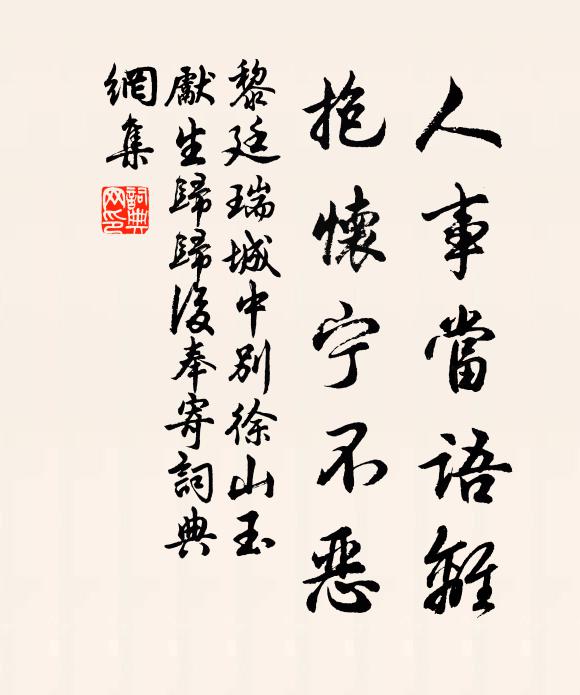 人事當語離
抱懷宁不恶
黎廷瑞城中别徐山玉
獻生歸歸後奉寄詞典
網集
詞典
网印